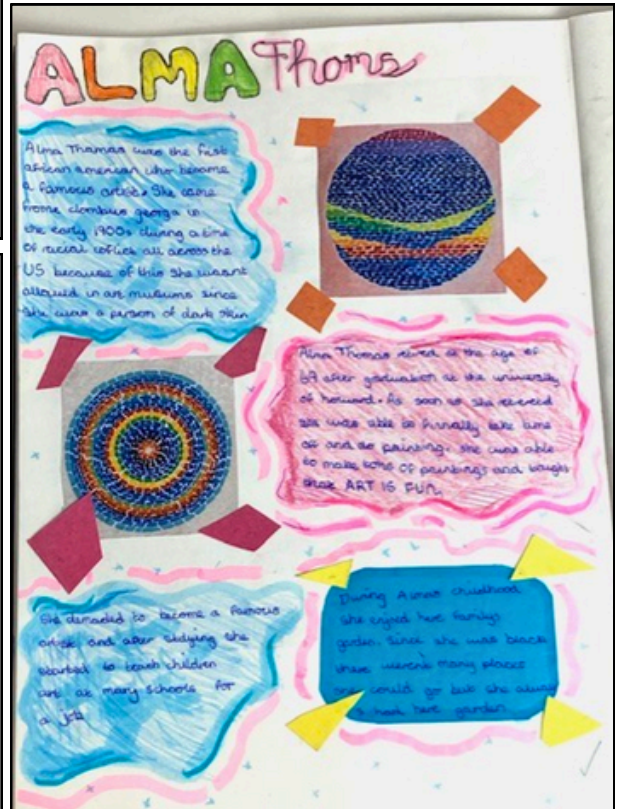 ALMA Thoms
Alma Thomas was the first
african american who became
a famous artist. She came
frome clombus georga in
the early 1900s during a time
of racial coflict all across the
US because of this she wasnt
allowed in art musiums since
she was a person of dark skin
Alma Thomas retired at the age of
69 after graduation at the university
of howard. As soon as she retered
she was able to finnally take time
off and do painting. she was able
to make tons of paintings and
that ART IS FUN.
She demaded to become a famous
artist and after studying she
started to teach children
art at many schools for
a job
During Almas childhood
she enjoed here familys
garden. Since she was black
there werent many places
she could go but she always
had here garden